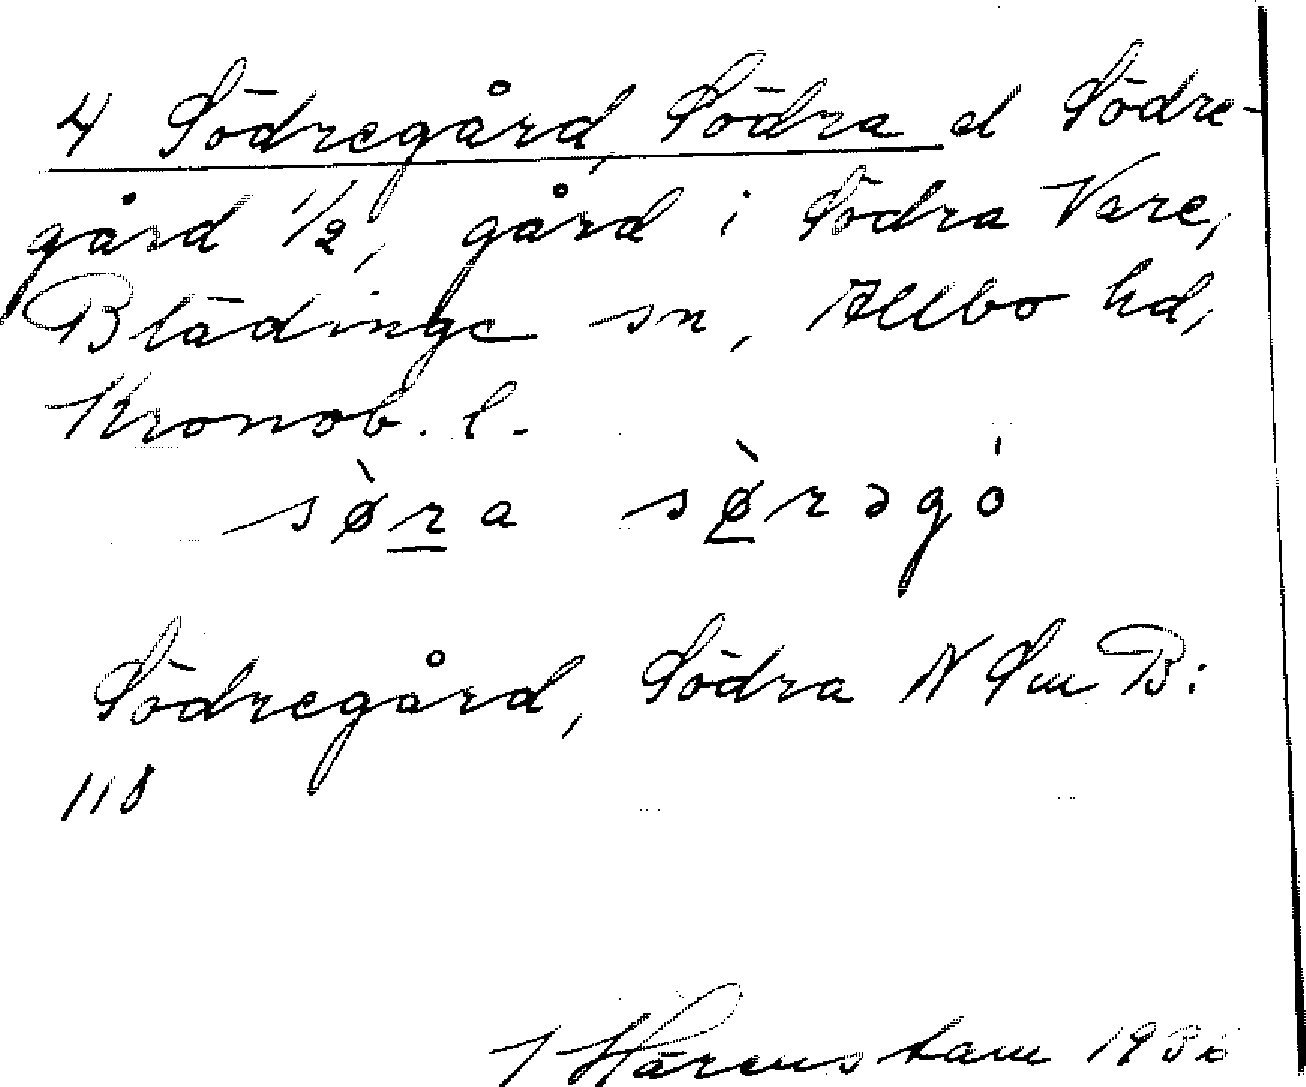 4 Södregård, Södra el Södre-
gård 1/2, gård i Södra Vare,
Blädinge sn, Allbo hd,
Kronob. l.
sø̀ra sø̀rəgó
Södregård, Södra N Sm B:
118
J Härenstam 1936